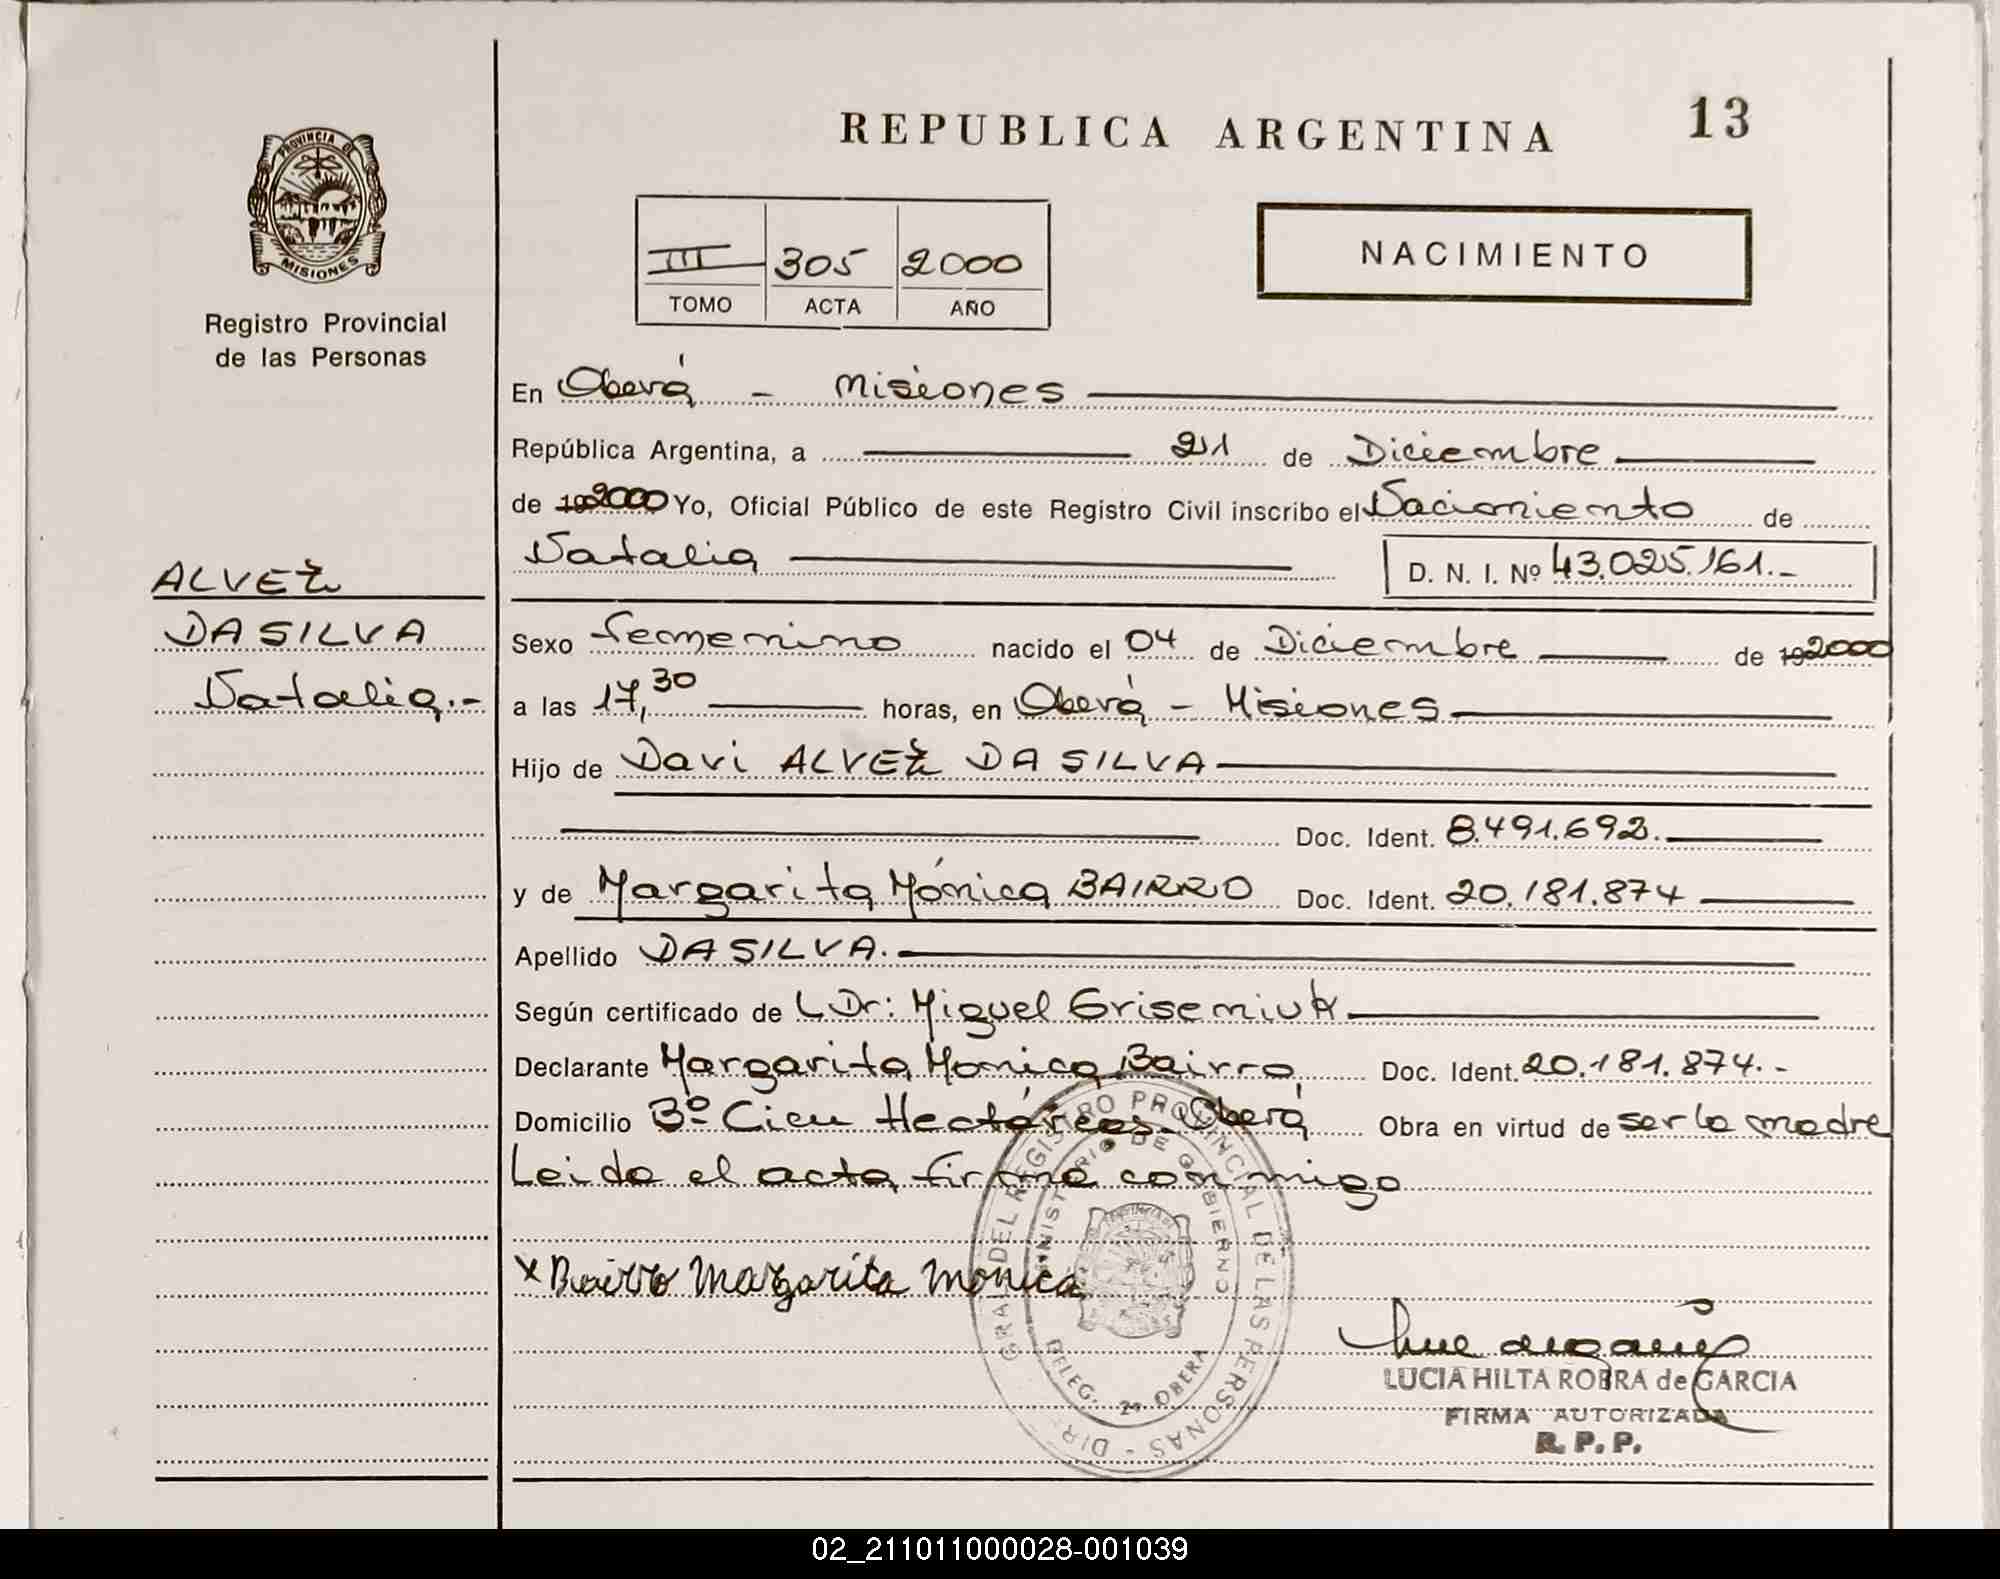 REPUBLICA ARGENTINA 13
PROVINCIA DE
MISIONES
Registro Provincial
de las Personas
III 305 2000
TOMO ACTA AÑO
NACIMIENTO
En Oberá - Misiones
República Argentina, a 21 de Diciembre
de 192000 Yo, Oficial Público de este Registro Civil inscribo el Nacimiento de
Natalia D. N. I. Nº 43.025.161.-
ALVEZ
DA SILVA
Natalia.-
Sexo femenino nacido el 04 de Diciembre de 192000
a las 17,30 horas, en Oberá - Misiones
Hijo de Davi ALVEZ DA SILVA
Doc. Ident. 8.491.692.
y de Margarita Mónica BAIRRO Doc. Ident. 20.181.874
Apellido DA SILVA.
Según certificado de L Dr: Miguel Griseniuk
Declarante Margarita Monica Bairro Doc. Ident. 20.181.874.-
Domicilio Bº Cien Hectáreas-Oberá Obra en virtud de ser la madre
Leida el acta firma conmigo
x Bairro Margarita Monica
DIR. GRAL DEL REGISTRO PROVINCIAL DE LAS PERSONAS -
MINISTERIO DE GOBIERNO
DELEG. 2ª OBERA
LUCIA HILTA ROBRA de GARCIA
FIRMA AUTORIZADA
R. P. P.
02_211011000028-001039